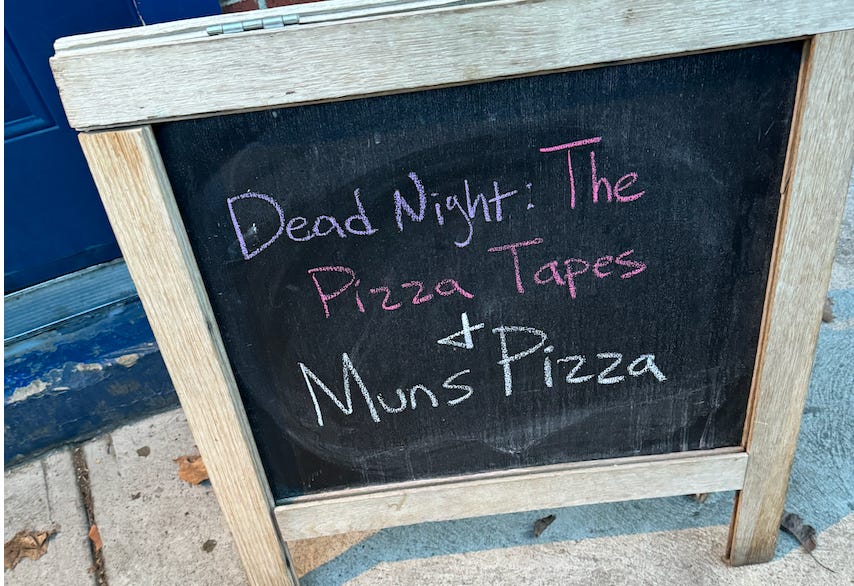 Dead Night: The
Pizza Tapes
+
Muns Pizza